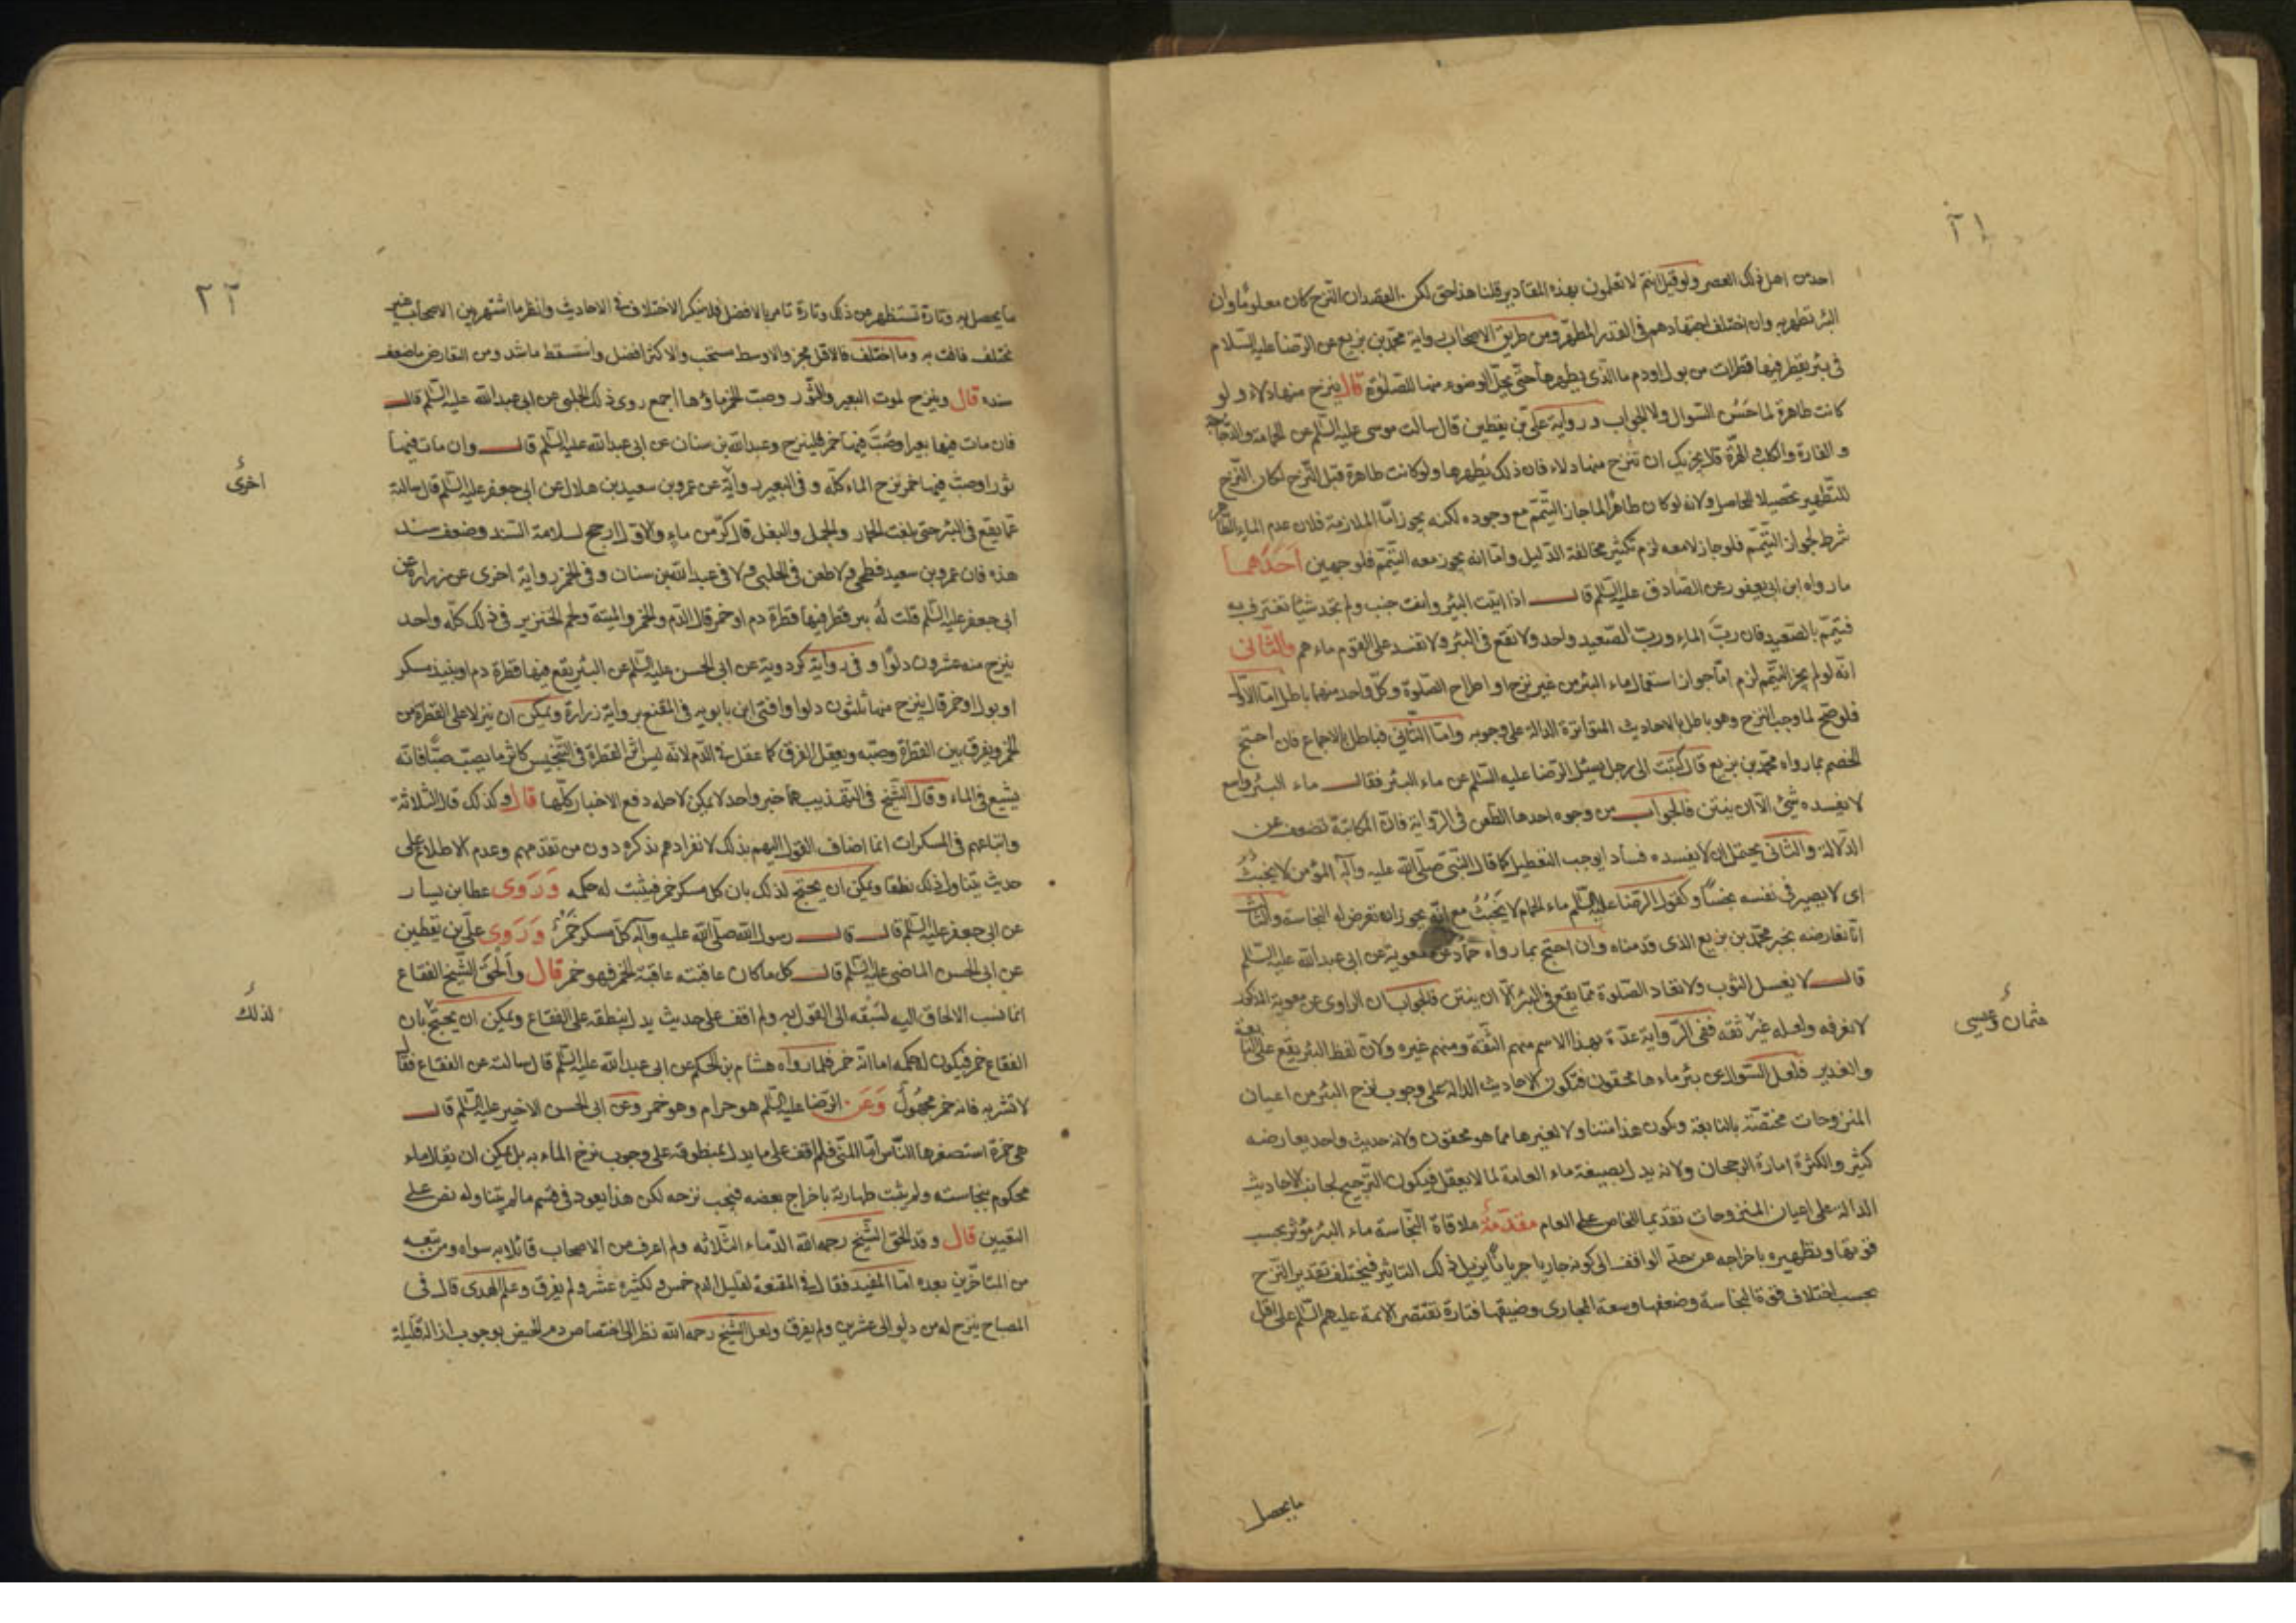 ٢١
احد من اهل ذلك العصر ولو قيل انتم لا تعلمون بهذه المقادير قلنا هذا حق لكن القصد ان النزح كان معلومًا وان
البئر تطهر به وان اختلف اجتهادهم في القدر المطهر ومن طريق الاصحاب رواية محمد بن بزيع عن الرضا عليه السلام
في بئر يقطر فيها قطرات من بول او دم ما الذي يطهرها حتى يحل الوضوء منها للصلوة قال ينزح منها دلاء ولو
كانت طاهرة لما حَسُن السوال ولا الجواب ورواية علي بن يقطين قال سالت موسى عليه السلم عن الحمامة والدجاجة
والفارة والكلب والهرة قال يجزيك ان تنزح منها دلاء فان ذلك يُطهرها ولو كانت طاهرة قبل النزح لكان النزح
للتطهير تحصيلا للحاصل ولانه لو كان طاهرًا لما جاز التيمّم مع وجوده لكنه يجوز امّا الملازمة فلان عدم الماء الطاهر
شرط لجواز التيمّم فلو جاز لا معه لزم تكثير مخالفة الدليل وامّا انه يجوز معه التيمّم فلوجهين احدهما
ما رواه ابن ابي يعفور عن الصادق عليه السلم قال اذا اتيت البئر وانت جنب ولم تجد شيئا تغترف به
فتيمّم بالصعيد فان ربّ الماء وربّ الصعيد واحد ولا تقع في البئر ولا تفسد على القوم ماءهم والثاني
انّه لو لم يجز التيمّم لزم امّا جواز استعمال ماء البئر من غير نزح او اطراح الصلوة وكلّ واحد منهما باطل امّا الاول
فلو صحّ لما وجب النزح وهو باطل بالاحاديث المتواترة الدالة على وجوبه وامّا الثاني فباطل بالاجماع فان احتج
الخصم بما رواه محمد بن بزيع قال كتبت الى رجل يسئل الرضا عليه السلم عن ماء البئر فقال ماء البئر واسع
لا يفسده شئ الّا ان ينتن فالجواب من وجوه احدها الطعن في الرواية فانّ المكاتبة تضعف عن
الدلالة والثاني يحتمل ان لا يفسده فسادا يوجب التعطيل كما قال النبيّ صلّى الله عليه وآله المؤمن لا يخبثُ
اي لا يصير في نفسه نجسًا وكقول الرضا عليه السلم ماء الحمام لا يَخبُثُ مع انّه يجوز ان تعرض له النجاسة والثالث
انّا نعارضه بخبر محمّد بن بزيع الذي قدمناه وان احتج بما رواه حمّاد عن معوية عن ابي عبد الله عليه السّلم
قال لا يغسل الثوب ولا تعاد الصلوة ممّا يقع في البئر الّا ان ينتن فالجواب ان الراوي عن معوية المذكور
لا نعرفه ولعله غير ثقه ففي الرواية عدّة بهذا الاسم منهم الثقة ومنهم غيره ولانّ لفظ البئر يقع على النابعة
والغدير فلعل السّوال عن بئر ماءها محقون فتكون الاحاديث الدالة على وجوب نزح البئر من اعيان
المنزوحات مختصّة بالنابعة ويكون هذا متناولا لغيرها مما هو محقون ولانه حديث واحد يعارضه
كثير والكثرة امارة الرجحان ولانه يدل بصيغة ماء العامة لما لا يعقل فيكون الترجيح لجانب الاحاديث
الدالة على اعيان المنزوحات تقديما للخاص على العام مقدّمة ملاقاة النجّاسة ماء البئر مؤثر بحسب
قوتها وتطهيره باخراجه عن حدّ الواقف الى كونه جاريا جريانًا يزيل ذلك التاثير فيختلف تقدير النزح
بحسب اختلاف قوة النجاسة وضعفها وسعة المجارى وضيقها فتارة تقتصر الائمة عليهم السّلم على اقل
عثمان وعيسى
ما يحصل
٢٢
ما يحصل به وتارة تستظهر من ذلك وتارة تامر بالافضل فلا ينكر الاختلاف في الاحاديث وانظر ما اشتهر بين الاصحاب غير
مختلف فافت به وما اختلف فالاقل مجز والاوسط مستحب والاكثر افضل واسقط ما شذ ومن التعارض ما ضعف
سنده قال وينزح لموت البعير والثّور وصبّ الخمر ماؤها اجمع روى ذلك الحلبي عن ابي عبد الله عليه السّلم قال
فان مات فيها بعير او صُبّ فيها خمر فلينزح وعبد الله بن سنان عن ابي عبد الله عليه السّلم قال وان مات فيها
ثور او صبّ فيها خمر نزح الماء كلّه وفي البعير رواية عن عمرو بن سعيد بن هلال عن ابي جعفر عليه السّلم قال سالته
عمّا يقع في البئر حتى بلغت الحمار والجمل والبغل قال كرّ من ماءٍ والاول ارجح لسلامة السّند وضعف سند
هذه فان عمرو بن سعيد فطحي ولا طعن في الحلبي ولا في عبد الله بن سنان وفي الخمر رواية اخرى عن زرارة عن
ابي جعفر عليه السّلم قلت له بير قطر فيها قطرة دم او خمر قال الدّم والخمر والميتة ولحم الخنزير في ذلك كلّه واحد
ينزح منه عشرون دلوًا وفي رواية كردويه عن ابي الحسن عليه السّلم عن البئر يقع فيها قطرة دم او نبيذ مسكر
او بول او خمر قال ينزح منها ثلثون دلوا وافتى ابن بابويه في المقنع برواية زرارة ويمكن ان ينزلا على القطرة من
الخمر ويفرق بين القطرة وصبّه ويعقل الفرق كما عقل في الدّم لانّه ليس اثر القطرة في التنجيس كاثر ما يصبّ صبًّا فانّه
يشيع في الماء وقال الشّيخ في التهذيب هما خبر واحد لا يمكن لاجله دفع الاخبار كلّها قال وكذلك قال الثلاثة
واتباعهم في المسكرات انما اضاف القول اليهم بذلك لانفرادهم بذكره دون من تقدّمهم وعدم الاطلاع على
حديث يتناول ذلك نطقا ويمكن ان يحتج لذلك بان كل مسكر خمر فيثبت له حكمه وَرَوى عطا بن يسار
عن ابي جعفر عليه السّلم قال قال رسول الله صلّى الله عليه وآله كلّ مسكر خَمْرٌ وَرَوى عليّ بن يقطين
عن ابي الحسن الماضي عليه السّلم قال كل ما كان عاقبته عاقبة الخمر فهو خمر قال وأَلْحَق الشّيخ الفقاع
انما نسب الالحاق اليه لسَبْقه الى القول به ولم اقف على حديث يدل بنطقه على الفقاع ويمكن ان يحتجّ بان
الفقاع خمر فيكون له حكمه اما انّه خمر فلما رواه هشام بن الحكم عن ابي عبد الله عليه السّلم قال سالته عن الفقاع فقال
لا تشربه فانه خمر مجهُولٌ وَعَن الرّضا عليه السّلم هو حرام وهو خمر وعن ابي الحسن الاخير عليه السّلم قال
هي خمرة استصغرها النّاس امّا المنيّ فلم اقف على ما يدل بمنطوقه على وجوب نزح الماء به بل يمكن ان يقال ماء
محكوم بنجاسته ولم يثبت طهارته باخراج بعضه فيجب نزحه لكن هذا يعود في قسم ما لم يتناوله نص على
التعيين قال وقد الحق الشّيخ رحمه الله الدّماء الثّلاثه ولم اعرف من الاصحاب قائلا به سواه ومن تبعه
من المتاخّرين بعده امّا المفيد فقال في المقنعة لقليل الدم خمس ولكثيره عشر ولم يفرق وعلم الهدى قال في
المصباح ينزح له من دلو الى عشرين ولم يفرق ولعل الشّيخ رحمه الله نظر الى اختصاص دم الحيض بوجوب ازالة قليله
اخرى
لذلك